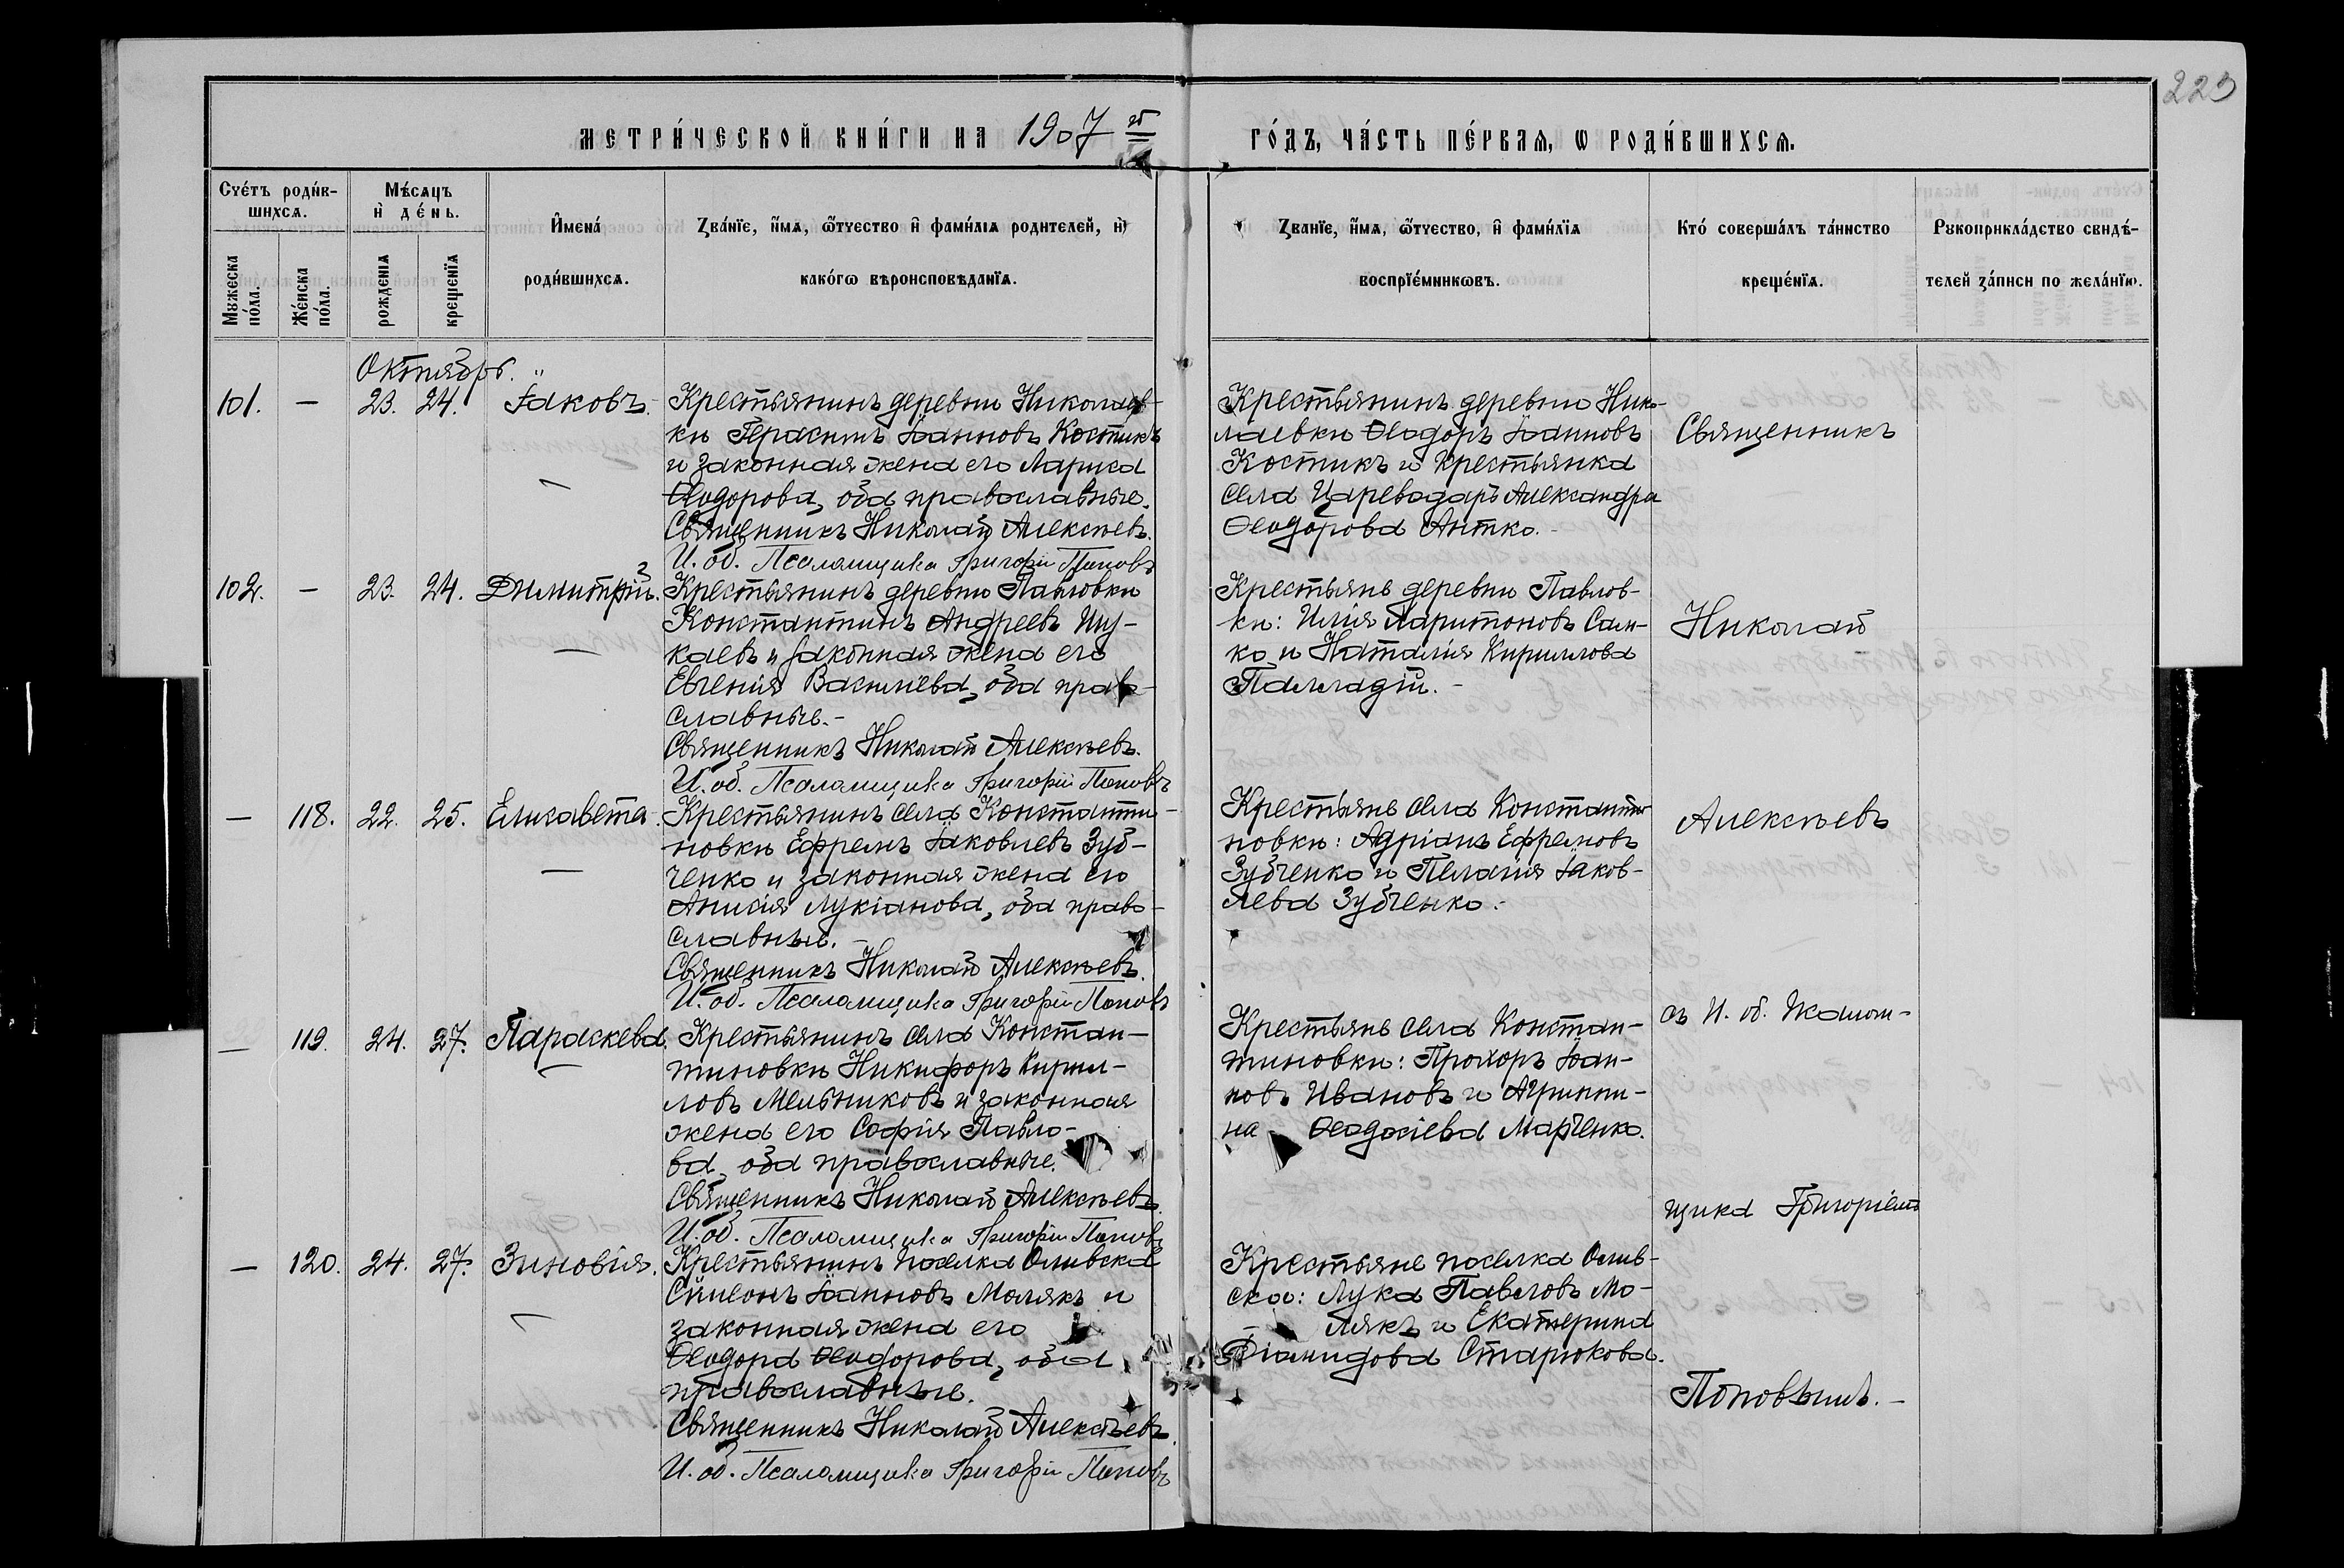 223
МЕТРИ́ЧЕСКОЙ КНИ́ГИ НА 1907 й ГО́ДЪ, ЧА́СТЬ ПЕ́РВАЯ, Ѡ РОДИ́ВШИХСЯ.
Сче́тъ роди́вшихся.
Мѣ́сяцъ и҆ де́нь.
Мужеска по́ла.
Же́нска по́ла.
рожденія
крещенїя
И҆мена́ роди́вшихся.
Зва́нїе, и҆́мя, ѻ҆́тчество и҆ фами́лїя родителей, и҆ како́гѡ вѣроисповѣданїя.
Званїе, и҆́мя, ѻ҆́тчество, и҆ фами́лїя воспрїе́мникѡвъ.
Кто́ соверша́лъ та́инство креще́нїя.
Рукоприкла́дство свидѣ́телей за́писи по жела́нїю.
Октябрь.
101. — 23. 24. Іаковъ.
Крестьянинъ деревни Николаев-
ки Герасимъ Іоанновъ Костикъ
и законная жена его Лариса
Ѳеодорова, оба православные.
Священникъ Николай Алексѣевъ.
И. об. Псаломщика Григорій Поповъ
Крестьянинъ деревни Нико-
лаевки Ѳеодоръ Іоанновъ
Костикъ и крестьянка
села Цареводаръ Александра
Ѳеодорова Антко.-
102. — 23. 24. Димитрій.
Крестьянинъ деревни Павловки
Константинъ Андреевъ Шу-
каевъ и законная жена его
Евгенія Васильева, оба право-
славные.-
Священникъ Николай Алексѣевъ.
И. об. Псаломщика Григорій Поповъ
Крестьяне деревни Павлов-
ки: Илія Харитоновъ Сам-
ко и Наталія Кириллова
Палладій.-
— 118. 22. 25. Елисавета.
Крестьянинъ села Константи-
новки Ефремъ Іаковлевъ Зуб-
ченко и законная жена его
Анисія Лукіанова, оба право-
славные.-
Священникъ Николай Алексѣевъ.
И. об. Псаломщика Григорій Поповъ
Крестьяне села Константи-
новки: Адріанъ Ефремовъ
Зубченко и Пелагія Іаков-
лева Зубченко.-
— 119. 24. 27. Параскева.
Крестьянинъ села Констан-
тиновки Никифоръ Кирил-
ловъ Мельниковъ и законная
жена его Софія Павло-
ва, оба православные.
Священникъ Николай Алексѣевъ.
И. об. Псаломщика Григорій Поповъ
Крестьяне села Констан-
тиновки: Прохоръ Іоан-
новъ Ивановъ и Агриппи-
на Ѳеодосіева Марченко.
— 120. 24. 27. Зиновія.
Крестьянинъ поселка Оливскаго
Сѵмеонъ Іоанновъ Молякъ и
законная жена его
Ѳеодора Ѳеодорова, оба
православные.
Священникъ Николай Алексѣевъ.
И. об. Псаломщика Григорій Поповъ
Крестьяне поселка Олив-
скаго: Лука Павловъ Мо-
лякъ и Екатерина
Діомидова Старюкова.
Священникъ
Николай
Алексѣевъ
съ И. об. Псалом-
щика Григоріемъ
Поповымъ.-